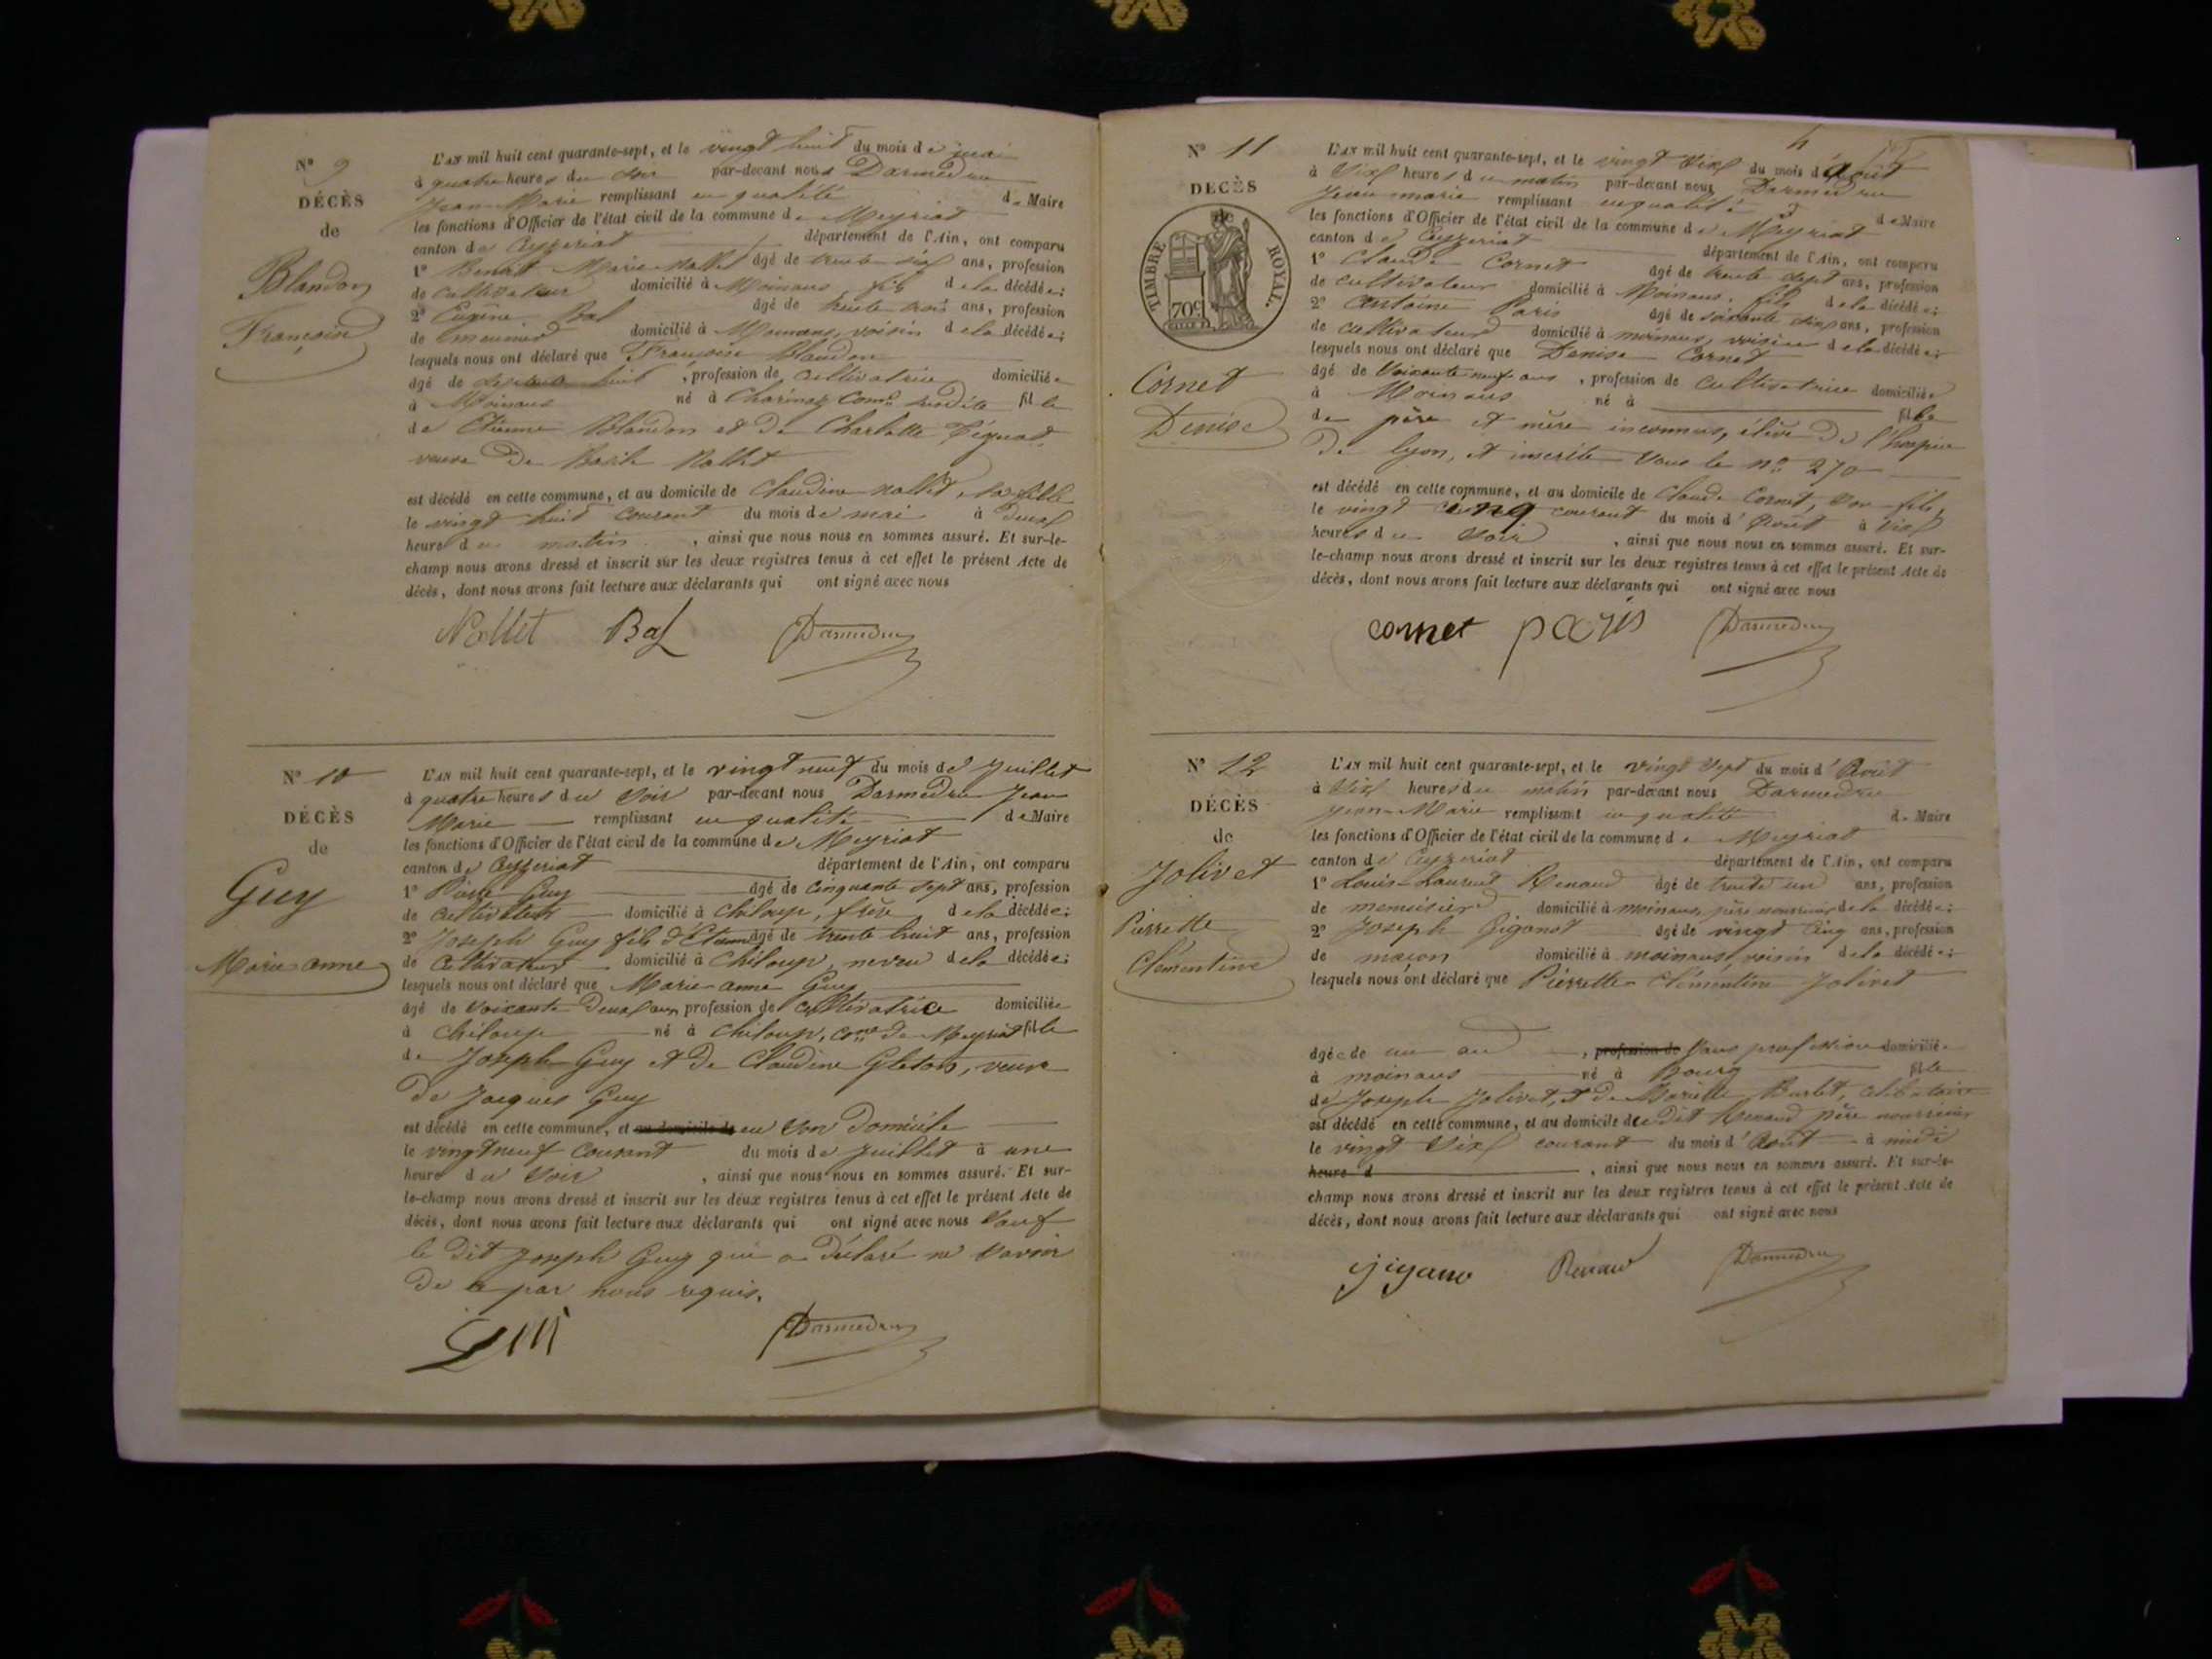 Nº 9
DÉCÈS
de
Blandon
Françoise
L'AN mil huit cent quarante-sept, et le vingt huit du mois de mai
à quatre heures du soir par-devant nous Darmedru
Jean-Marie remplissant en qualité de Maire
les fonctions d'Officier de l'état civil de la commune de Meyriat
canton de Ceyzeriat département de l'Ain, ont comparu
1º Benoit Marie Nallet âgé de trente six ans, profession
de cultivateur domicilié à Moinans, fils de la décédée;
2º Eugène Bal âgé de trente trois ans, profession
de meunier domicilié à Moinans, voisin de la décédée;
lesquels nous ont déclaré que Françoise Blandon
âgé de huit, profession de cultivatrice domiciliée
à Moinans né à Charinaz Comne susdite fille
de Etienne Blandon et de Charlotte
veuve de Nallet
est décédé en cette commune, et au domicile de Claudine Nallet, sa fille
le vingt huit courant du mois de mai à deux
heure du matin, ainsi que nous nous en sommes assuré. Et sur-le-
champ nous avons dressé et inscrit sur les deux registres tenus à cet effet le présent Acte de
décès, dont nous avons fait lecture aux déclarants qui ont signé avec nous
Nallet Bal Darmedru
Nº 10
DÉCÈS
de
Guy
Marie anne
L'AN mil huit cent quarante-sept, et le vingt neuf du mois de Juillet
à quatre heures du soir par-devant nous Darmedru Jean
Marie remplissant en qualité de Maire
les fonctions d'Officier de l'état civil de la commune de Meyriat
canton de Ceyzeriat département de l'Ain, ont comparu
1º Pierre Guy âgé de cinquante sept ans, profession
de cultivateur domicilié à Chiloup, frère de la décédée;
2º Joseph Guy fils d'Etienne âgé de trente huit ans, profession
de cultivateur domicilié à Chiloup, neveu de la décédée;
lesquels nous ont déclaré que Marie anne Guy
âgé de soixante deux ans, profession de cultivatrice domiciliée
à Chiloup né à Chiloup, Cne de Meyriat fille
de Joseph Guy et de Claudine Gleton, veuve
de Jacques Guy
est décédé en cette commune, et au domicile de en son domicile
le vingt neuf courant du mois de Juillet à une
heure du soir, ainsi que nous nous en sommes assuré. Et sur-
le-champ nous avons dressé et inscrit sur les deux registres tenus à cet effet le présent Acte de
décès, dont nous avons fait lecture aux déclarants qui ont signé avec nous sauf
le dit Joseph Guy qui a déclaré ne savoir
de ce par nous requis.
Darmedru
Nº 11
DÉCÈS
de
TIMBRE ROYAL.
70c
Cornet
Denise
L'AN mil huit cent quarante-sept, et le vingt six du mois d'août
à six heures du matin par-devant nous Darmedru
Jean marie remplissant en qualité de Maire
les fonctions d'Officier de l'état civil de la commune de Meyriat
canton de Ceyzeriat département de l'Ain, ont comparu
1º Claude Cornet âgé de trente sept ans, profession
de cultivateur domicilié à Moinans, fils de la décédée;
2º Antoine Paris âgé de soixante cinq ans, profession
de cultivateur domicilié à moinans, voisin de la décédée;
lesquels nous ont déclaré que Denise Cornet
âgé de soixante-neuf ans, profession de cultivatrice domiciliée
à Moinans né à fille
de père et mère inconnus, élève de l'hospice
de lyon, et inscrite sous le nº 270
est décédé en cette commune, et au domicile de Claude Cornet, son fils,
le vingt cinq courant du mois d'août à six
heures du soir, ainsi que nous nous en sommes assuré. Et sur-
le-champ nous avons dressé et inscrit sur les deux registres tenus à cet effet le présent Acte de
décès, dont nous avons fait lecture aux déclarants qui ont signé avec nous
cornet paris Darmedru
Nº 12
DÉCÈS
de
Jolivet
Pierrette
Clémentine
L'AN mil huit cent quarante-sept, et le vingt sept du mois d'Août
à six heures du matin par-devant nous Darmedru
Jean-Marie remplissant en qualité de Maire
les fonctions d'Officier de l'état civil de la commune de Meyriat
canton de Ceyzeriat département de l'Ain, ont comparu
1º Louis-Laurent Renaud âgé de trente un ans, profession
de menuisier domicilié à moinans, père nourricier de la décédée;
2º Joseph Giganot âgé de vingt cinq ans, profession
de maçon domicilié à moinans, voisin de la décédée;
lesquels nous ont déclaré que Pierrette Clémentine Jolivet
âgée de un an, profession de sans profession domiciliée
à moinans né à Bourg fille
de Joseph Jolivet, et de Mariette Burlet, célibataire
est décédé en cette commune, et au domicile de dit Renaud père nourricier
le vingt six courant du mois d'août à midi
heure d, ainsi que nous nous en sommes assuré. Et sur-le-
champ nous avons dressé et inscrit sur les deux registres tenus à cet effet le présent Acte de
décès, dont nous avons fait lecture aux déclarants qui ont signé avec nous
Renaud Darmedru